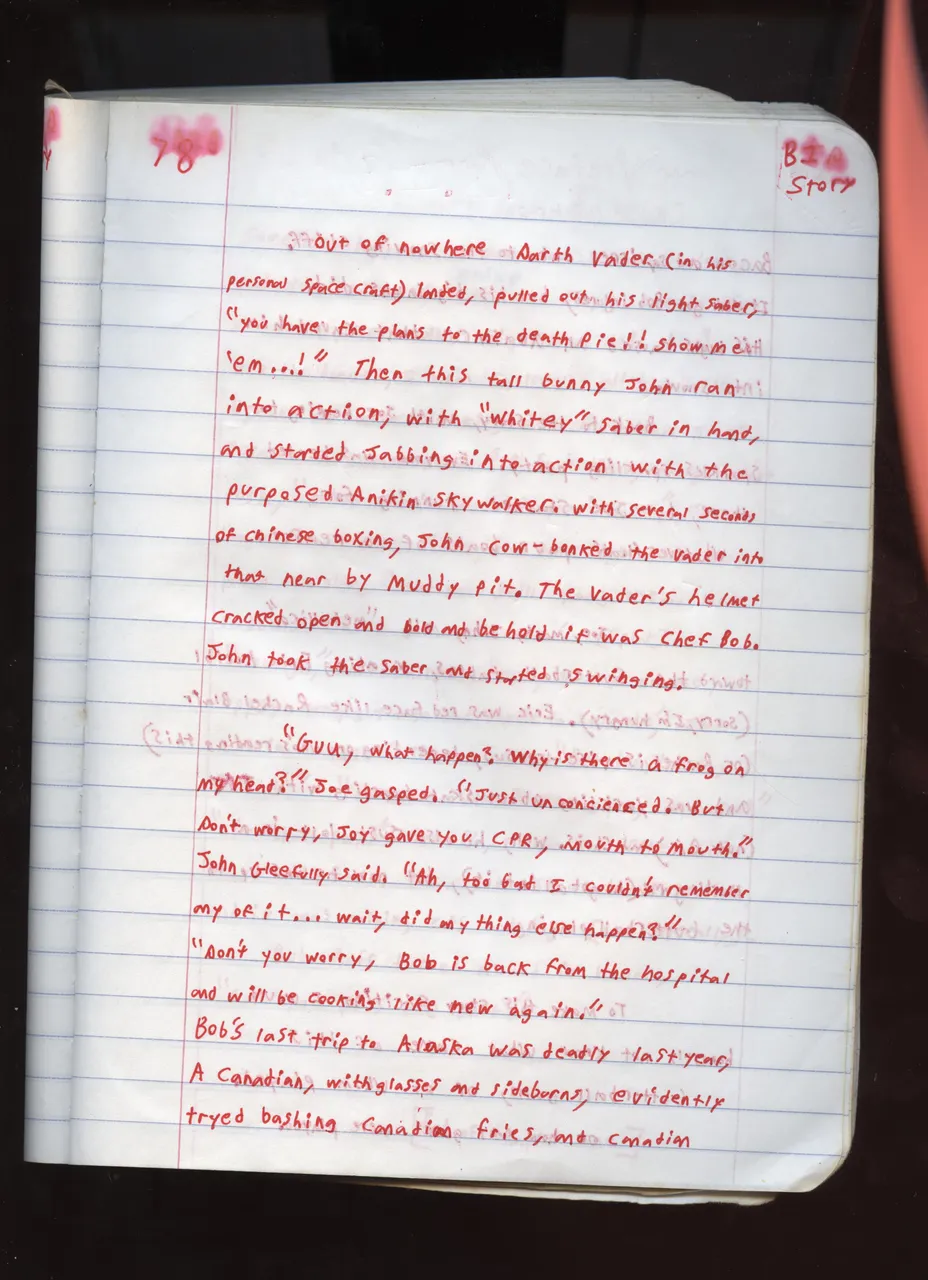 78
BIA
Story
Out of nowhere Darth Vader (in his
personal space craft) landed, pulled out his light saber,
"you have the plans to the death pie!! show me
'em...!" Then this tall bunny John ran
into action, with "Whitey" saber in hand,
and started Jabbing into action with the
purposed Anikin Skywalker. With several seconds
of chinese boxing, John cow-bonked the vader into
that near by Muddy pit. The Vader's helmet
cracked open and bold and behold it was Chef Bob.
John took the saber and started swinging.
"Guu, what happen? Why is there a frog on
my head?" Joe gasped. "Just unconcienced. But
Don't worry, Joy gave you CPR, Mouth to Mouth."
John Gleefully said. "Ah, too bad I couldn't remember
any of it... wait, did anything else happen?"
"Don't you worry, Bob is back from the hospital
and will be cooking like new again."
Bob's last trip to Alaska was deadly last year,
A Canadian, with glasses and sideburns, evidently
tryed bashing Canadian fries, and canadian